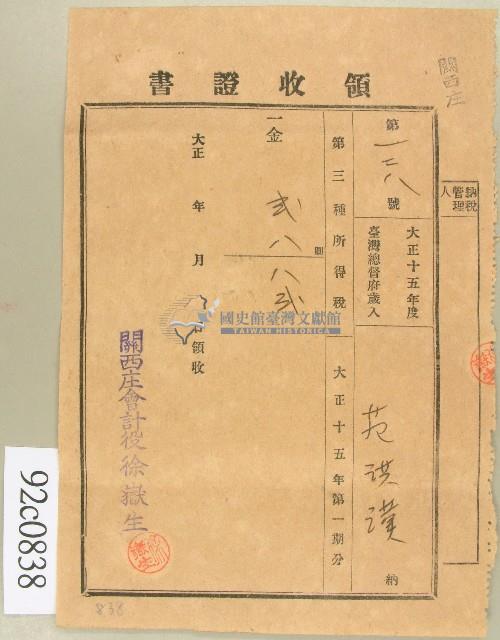 關西庄
領收證書
納稅管理人
第一三八號
大正十五年度
臺灣總督府歲入
范洪漢 納
第三種所得稅
大正十五年第一期分
一金
圓
弍八八弍
大正 年 月
領收
關西庄會計役徐嶽生
國史館臺灣文獻館
TAIWAN HISTORICA
92c0838
838